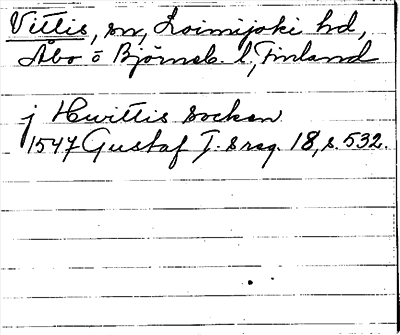 Vittis, sn, Loimijoki hd,
Åbo o Björneb. l, Finland
j Hwittis socken
1547 Gustaf I. s reg. 18, s. 532.